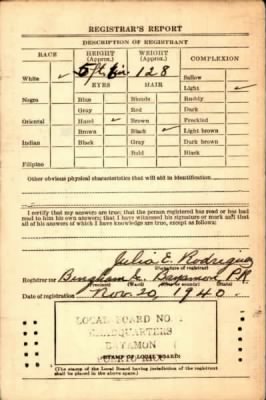 REGISTRAR'S REPORT
DESCRIPTION OF REGISTRANT
RACE HEIGHT (Approx.) WEIGHT (Approx.) COMPLEXION
White ✓ 5 ft. 6 in. 128 Sallow
EYES HAIR Light ✓
Negro Blue Blonde Ruddy
Gray Red Dark
Oriental Hazel ✓ Brown Freckled
Brown Black ✓ Light brown
Indian Black Gray Dark brown
Bald Black
Filipino
Other obvious physical characteristics that will aid in identification
I certify that my answers are true; that the person registered has read or has had
read to him his own answers; that I have witnessed his signature or mark and that
all of his answers of which I have knowledge are true, except as follows:
Julia E. Rodriguez
(Signature of registrar)
Registrar for Bayamon, P.R.
(Precinct) (Ward) (City or county) (State)
Date of registration Nov. 20, 1940.
LOCAL BOARD NO.
HEADQUARTERS
BAYAMON
PUERTO RICO
(STAMP OF LOCAL BOARD)
(The stamp of the Local Board having jurisdiction of the registrant shall
be placed in the above space.)